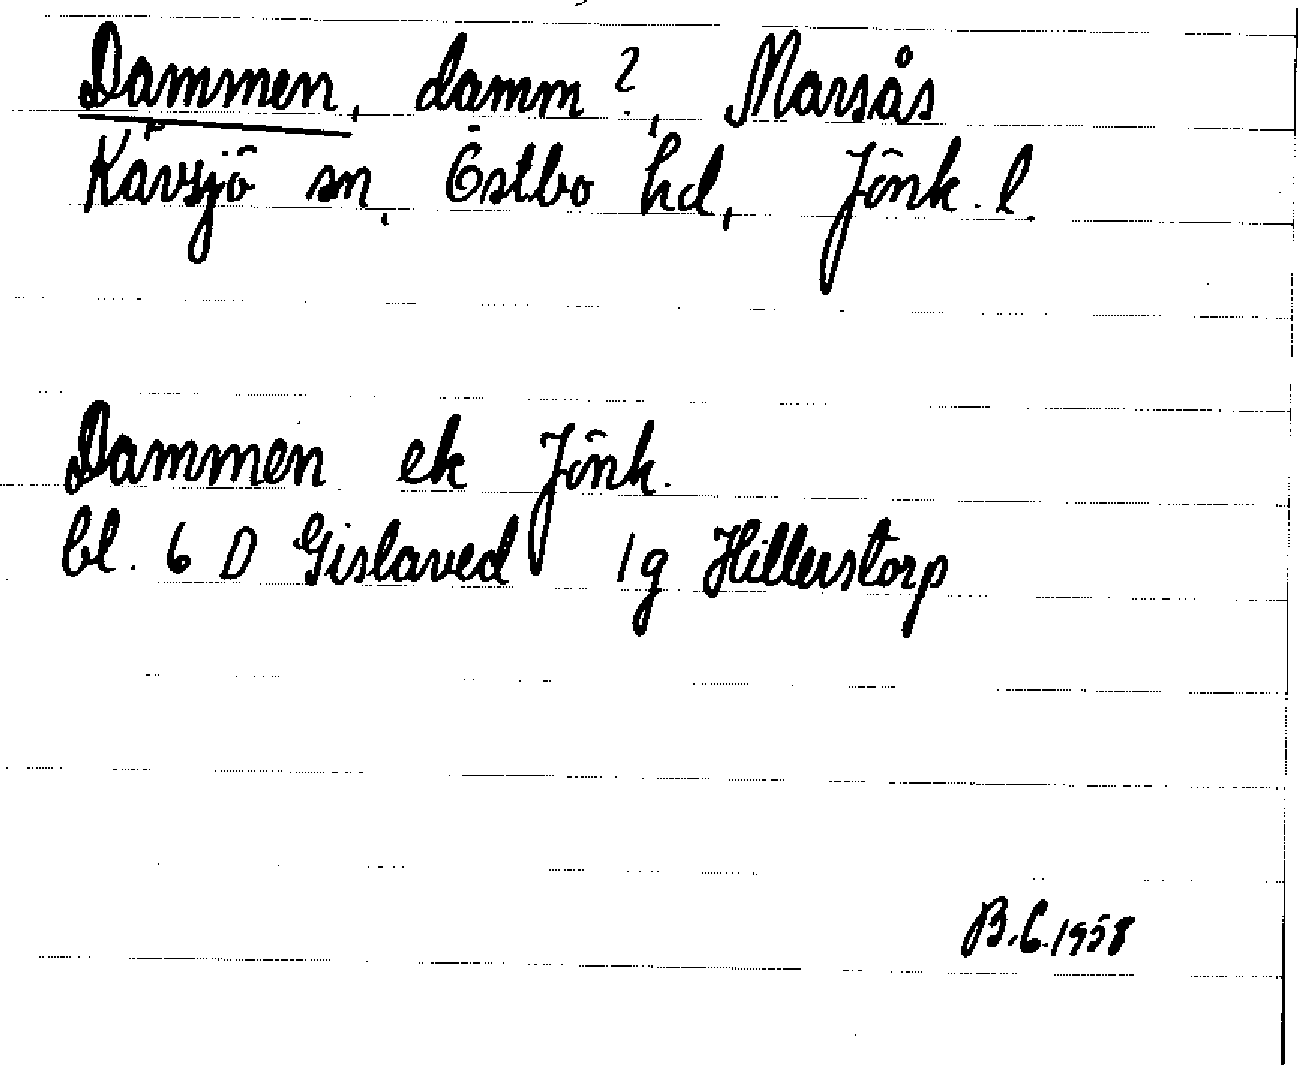 Dammen, damm?, Marsås
Kävsjö sn, Östbo hd, Jönk. l.
Dammen ek Jönk.
bl. 6 D Gislaved 1g Hillerstorp
B.C. 1958